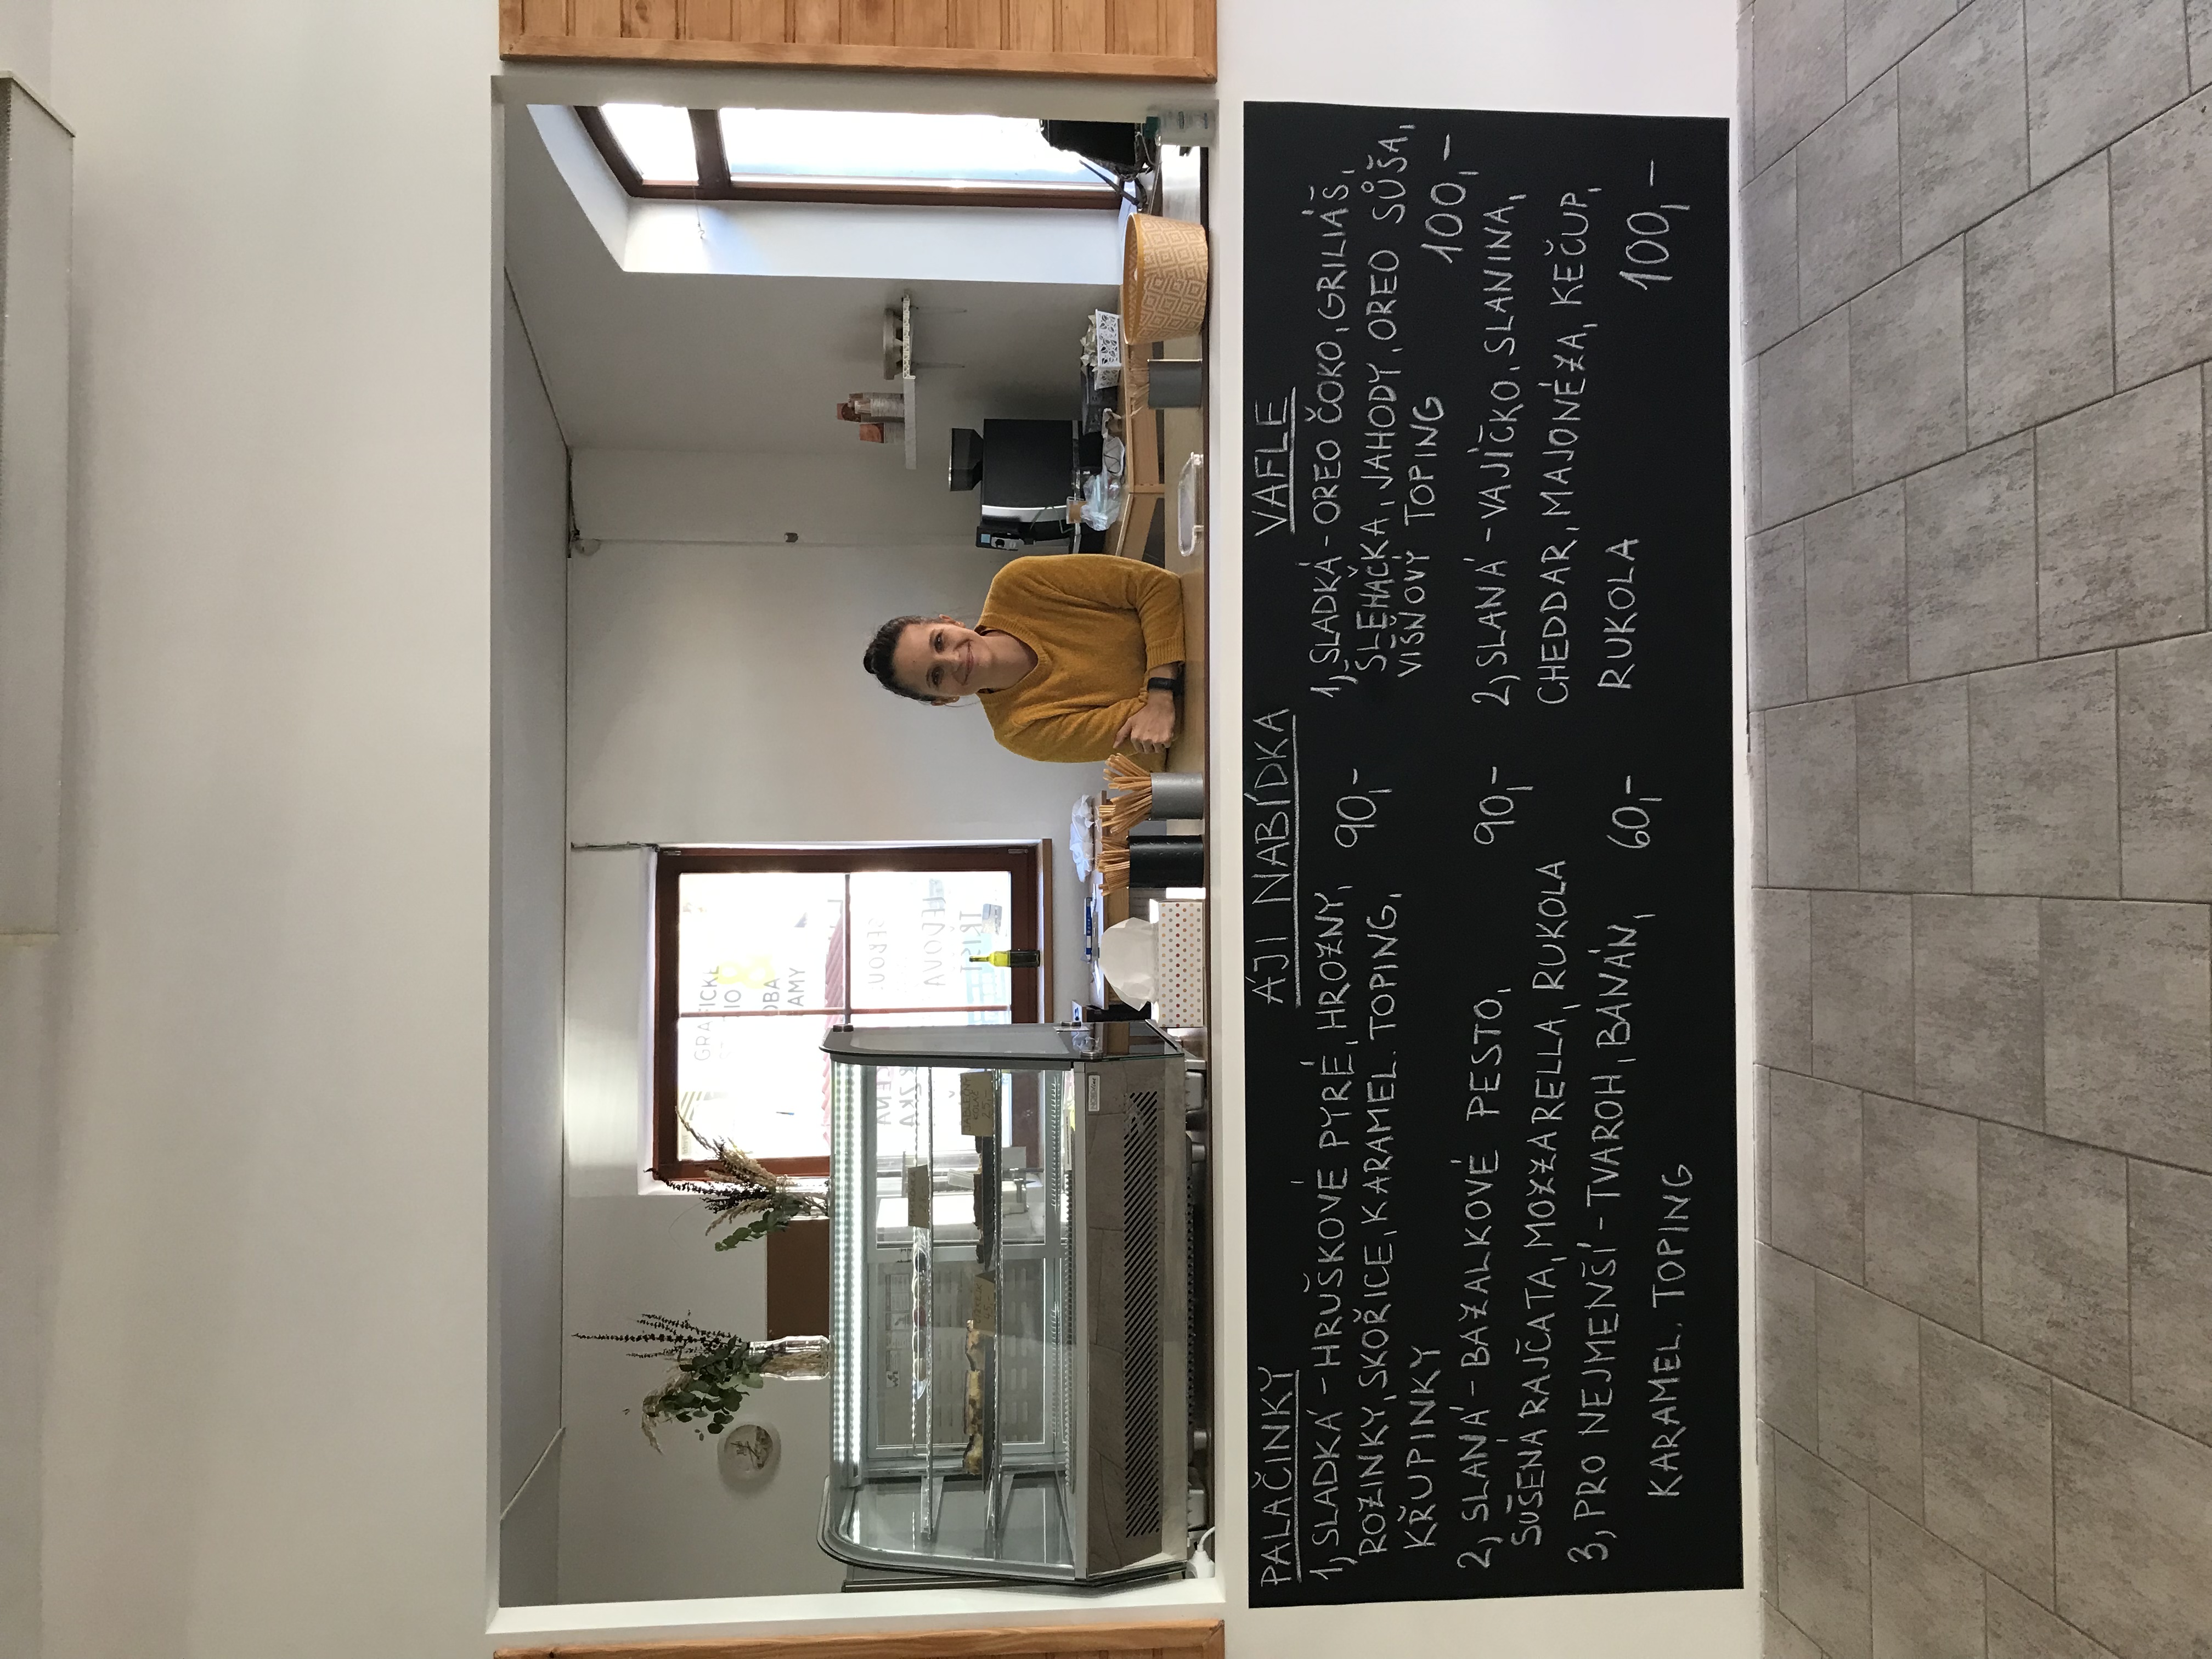 GRAFICKÉ
PALAČINKY
1, SLADKÁ - HRUŠKOVÉ PYRÉ, HROZNY, 90,-
ROZINKY, SKOŘICE, KARAMEL. TOPING,
KŘUPINKY
2, SLANÁ - BAZALKOVÉ PESTO, 90,-
SUŠENÁ RAJČATA, MOZZARELLA, RUKOLA
3, PRO NEJMENŠÍ - TVAROH, BANÁN, 60,-
KARAMEL. TOPING
ÁJI NABÍDKA
VAFLE
1, SLADKÁ - OREO ČOKO, GRILIÁŠ,
ŠLEHAČKA, JAHODY, OREO SŮŠA,
VIŠNOVÝ TOPING 100,-
2, SLANÁ - VAJÍČKO, SLANINA,
CHEDDAR, MAJONÉZA, KEČUP,
RUKOLA 100,-